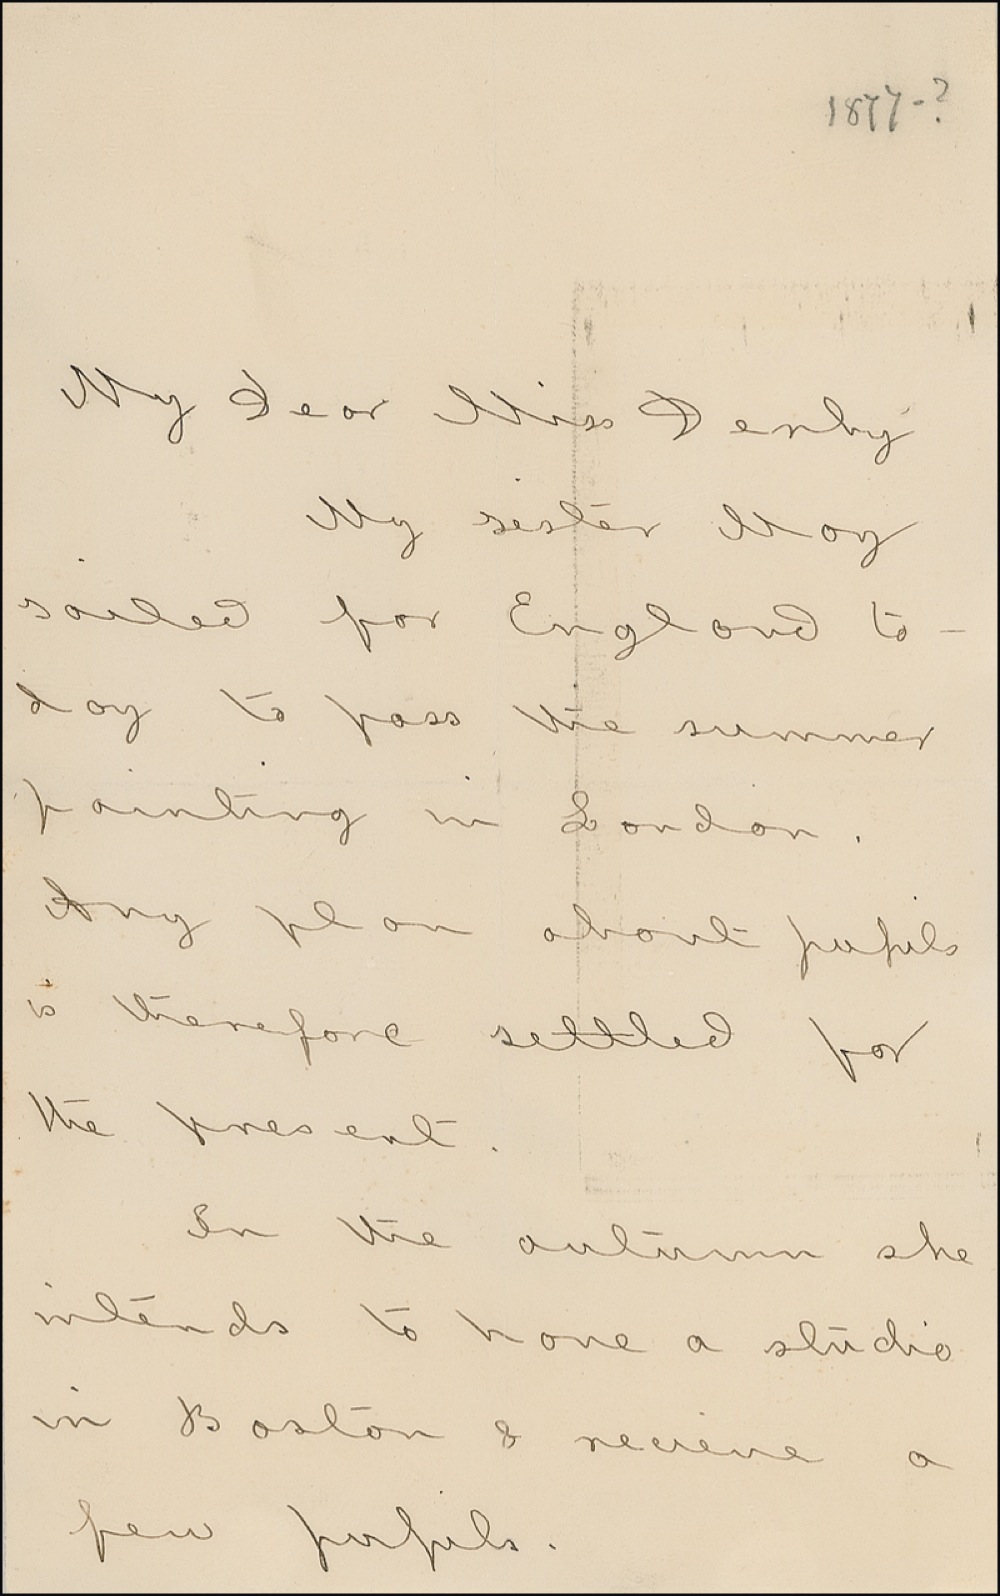 1877-?
My Dear Miss Derby
My sister May
sailed for England to-
day to pass the summer
painting in London.
Any plan about pupils
is therefore settled for
the present.
In the autumn she
intends to have a studio
in Boston & recieve a
few pupils.